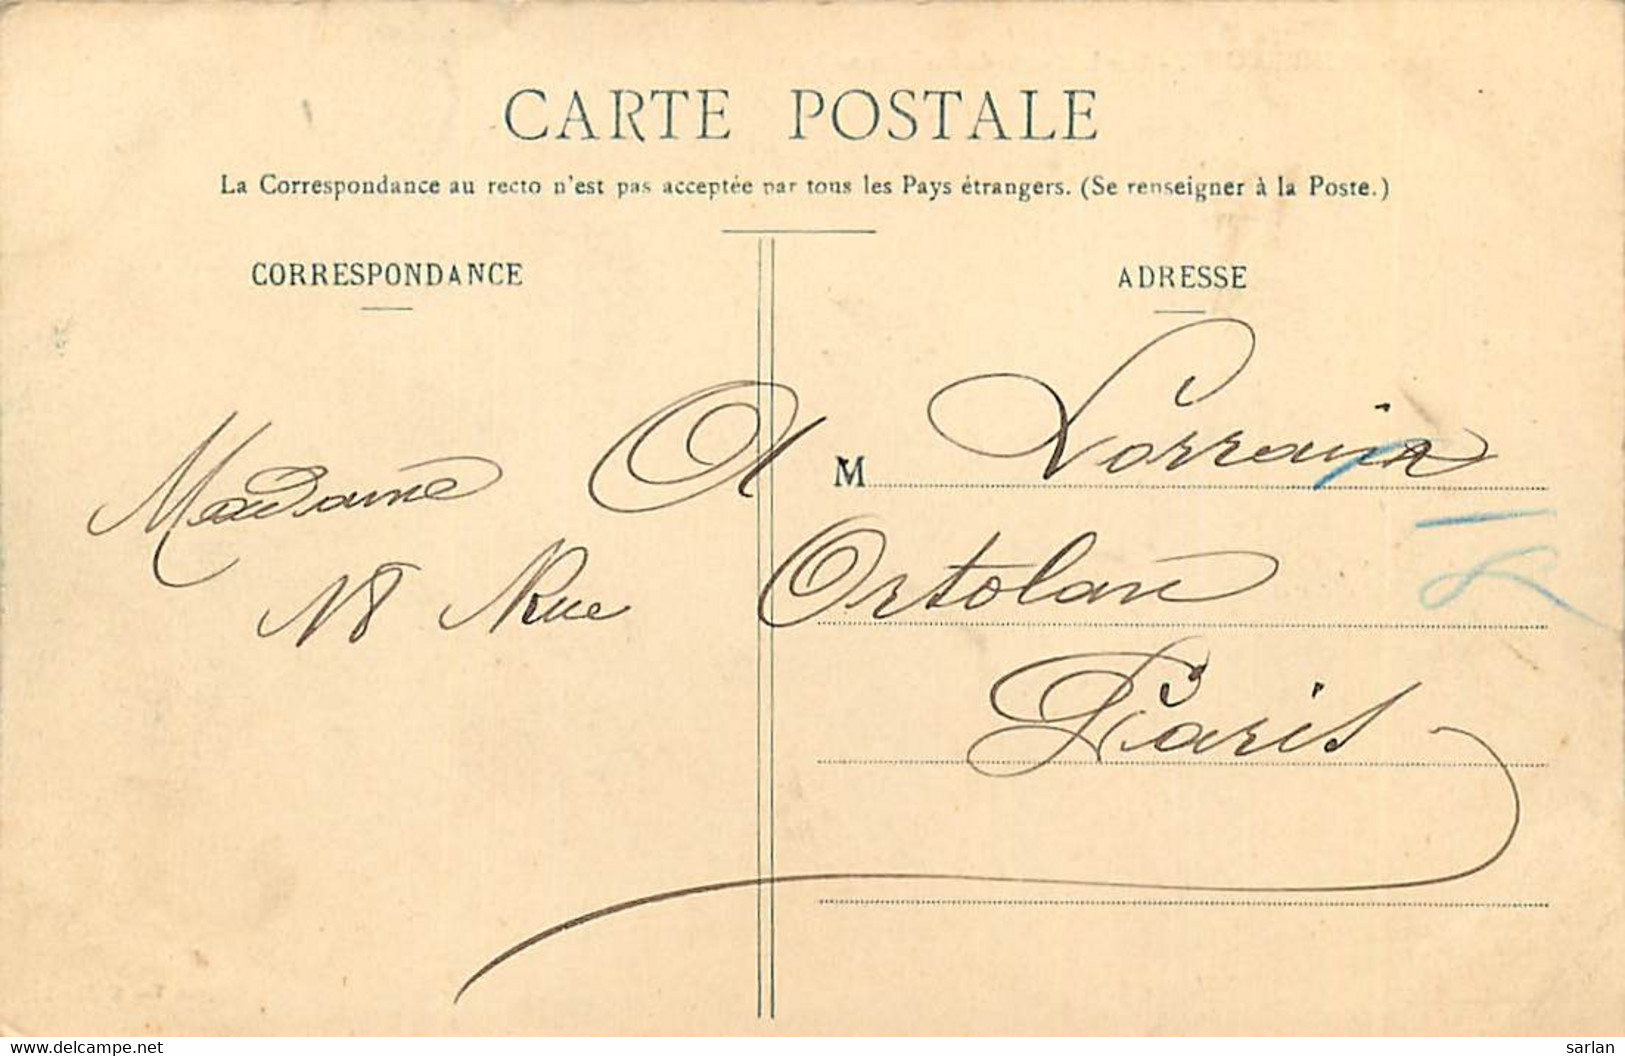 CARTE POSTALE
La Correspondance au recto n'est pas acceptée par tous les Pays étrangers. (Se renseigner à la Poste.)
CORRESPONDANCE
ADRESSE
Madame A M Lorrain
18 Rue Ortolan
Paris
www.delcampe.net
sarlan